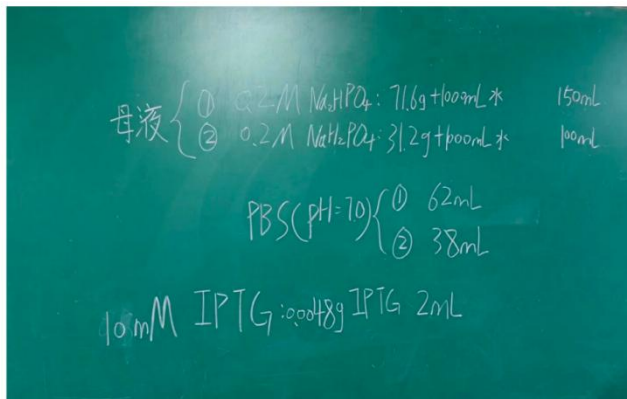 母液 { ① 0.2M Na₂HPO₄: 71.6g+1000mL水 150mL
② 0.2M NaH₂PO₄: 31.2g+1000mL水 100mL
PBS(pH=7.0) { ① 62mL
② 38mL
10mM IPTG: 0.0048g IPTG 2mL